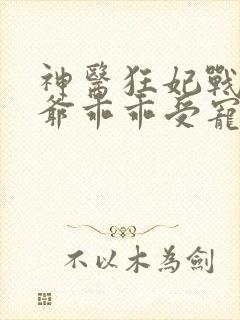 神醫狂妃戰
爺乖乖受寵
不以木為劍